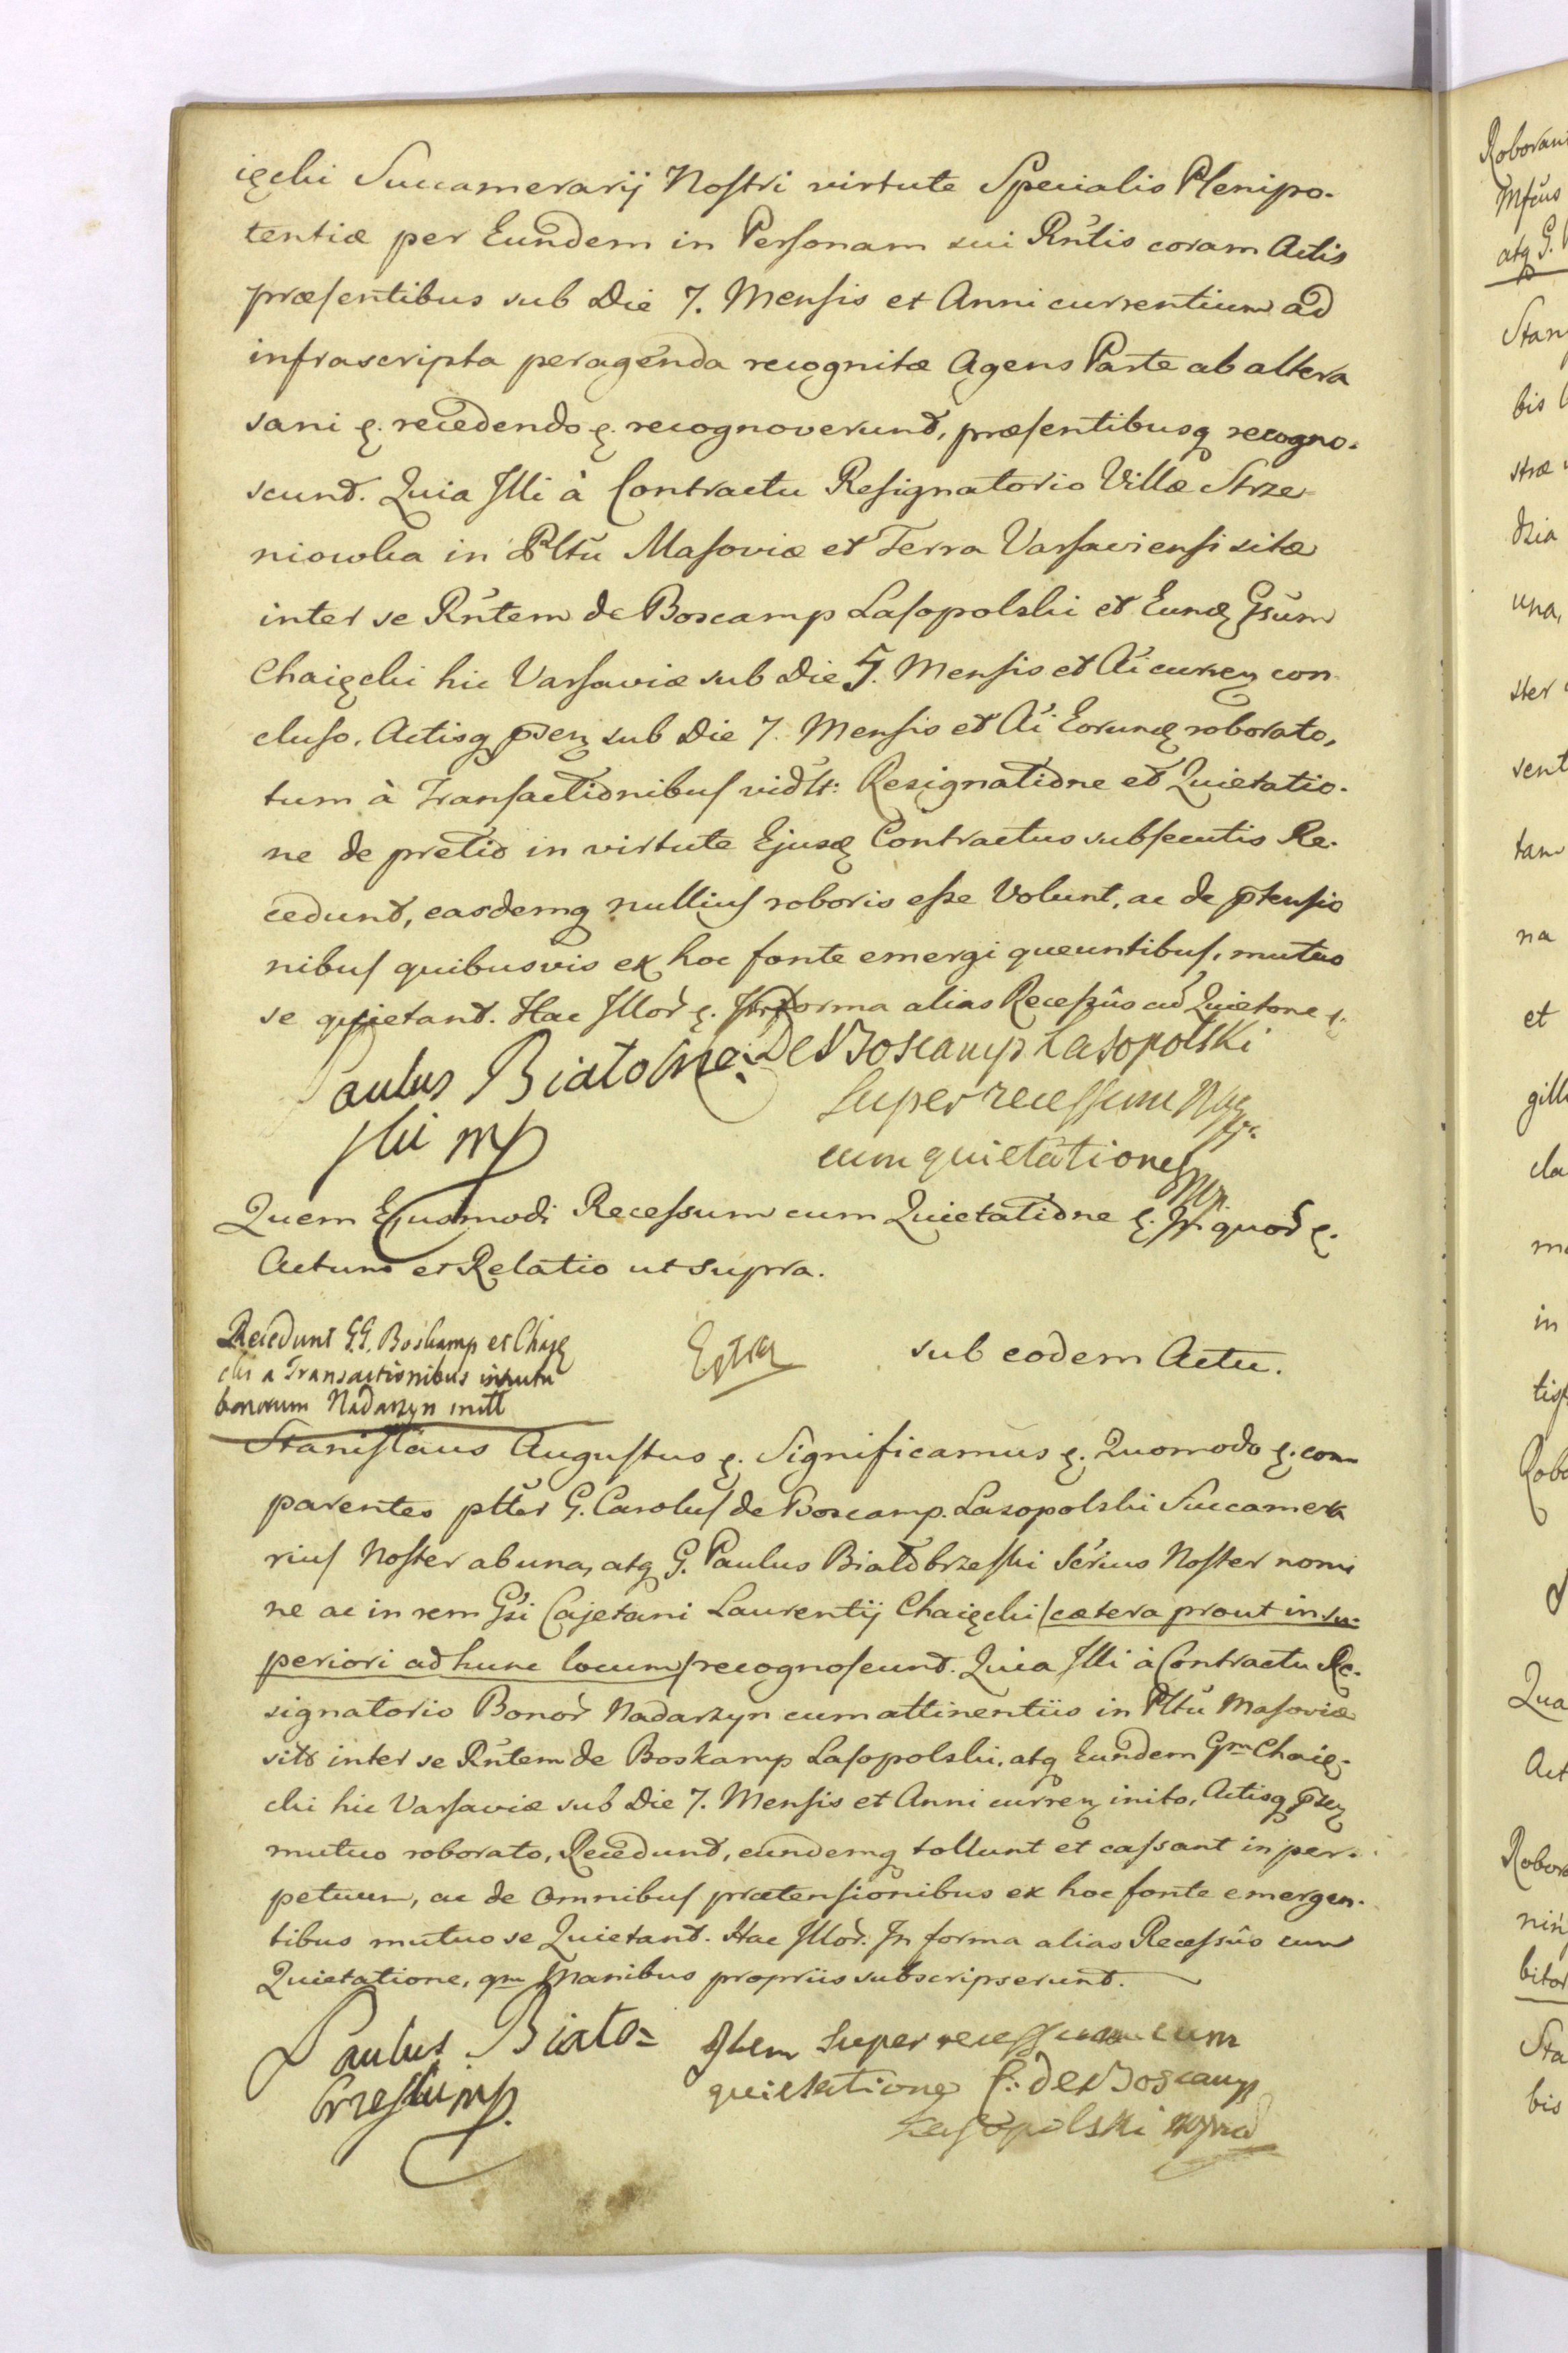 ięcki Succamerarij Nostri virtute Specialis Plenipo-
tentiæ per Eundem in Personam sui Rntis coram Actis
præsentibus sub Die 7. Mensis et Anni currentium ad
infrascripta peragenda recognitæ Agens Parte ab altera
sani ę. recedendo ę. recognoverunt, præsentibusq recogno-
scunt. Quia Illi à Contractu Resignatorio Villæ Strze-
niowka in Pltũ Masoviæ et Terra Varsaviensi sitæ
inter se Rntem de Boscamp Lasopolski et Eunḍ Gsum
Chaięcki hic Varsaviæ sub Die 5. Mensis et Ai curreñ con
cluso, Actisq pseñ sub Die 7. Mensis et Ai Eorunḍ roborato,
tum à Transactionibus vidlt: Resignatione et Quietatio-
ne de pretio in virtute Ejusḍ Contractus subsecutis Re-
cedunt, easdemq nullius roboris esse Volunt, ac de ptensio
nibus quibusvis ex hoc fonte emergi queuntibus, mutuo
se quietant. Hac Illor ę. In forma alias Recessûs cũ Quietone ę.
Paulus Biało
ski mp
De Boscamp Lasopolski
Super recessum
cum quietatione
Quem Ejusmodi Recessum cum Quietatione ę. In quor ę.
Actum et Relatio ut supra.
Recedunt G.G. Boskamp et Chaię
cki a Transactionibus intuitu
bonorum Nadarzyn initt
Extra
sub eodem Actu.
Stanislaus Augustus ę. Significamus ę. Quomodo ę. com
parentes pltter G. Carolus de Boscamp. Lasopolski Succamera
rius Noster ab una, atq G. Paulus Białobrzeski Serius Noster nomi
ne ac in rem Gsi Cajetani Laurentij Chaięcki /cætera prout in su-
periori ad hunc locum/ recognoscunt. Quia Illi à Contractu Re-
signatorio Bonor Nadarzyn cum attinentiis in Pltũ Masoviæ
sitor inter se Rntem de Boskamp Lasopolski, atq Eundem Gm Chaię-
cki hic Varsaviæ sub Die 7. Mensis et Anni curreñ inito, Actisq pseñ
mutuo roborato, Recedunt, eundemq tollunt et cassant in per-
petuum, ac de Omnibus prætensionibus ex hoc fonte emergen-
tibus mutuo se Quietant. Hac Illor. In forma alias Recessûs cum
Quietatione, qm Manibus propriis subscripserunt.
Paulus Biało=
brzeski mp.
Item Super recessum cum
quietatione C: de Boscamp
Lasopolski mpria
Roboran
Mfcus
atq G.
Stan
bis
stræ
dzia
una,
ster
sent
tam
na
et
gill
cla
in
Robo
Qua
Act
Robor
nin
bitor
Sta
bis